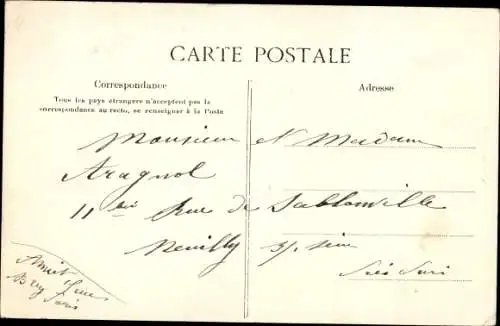 CARTE POSTALE
Correspondance
Tous les pays étrangers n'acceptent pas la
correspondance au recto, se renseigner à la Poste
Adresse
Monsieur et Madame
Aragnol
11 bis Rue de Sablonville
Neuilly s/ Seine